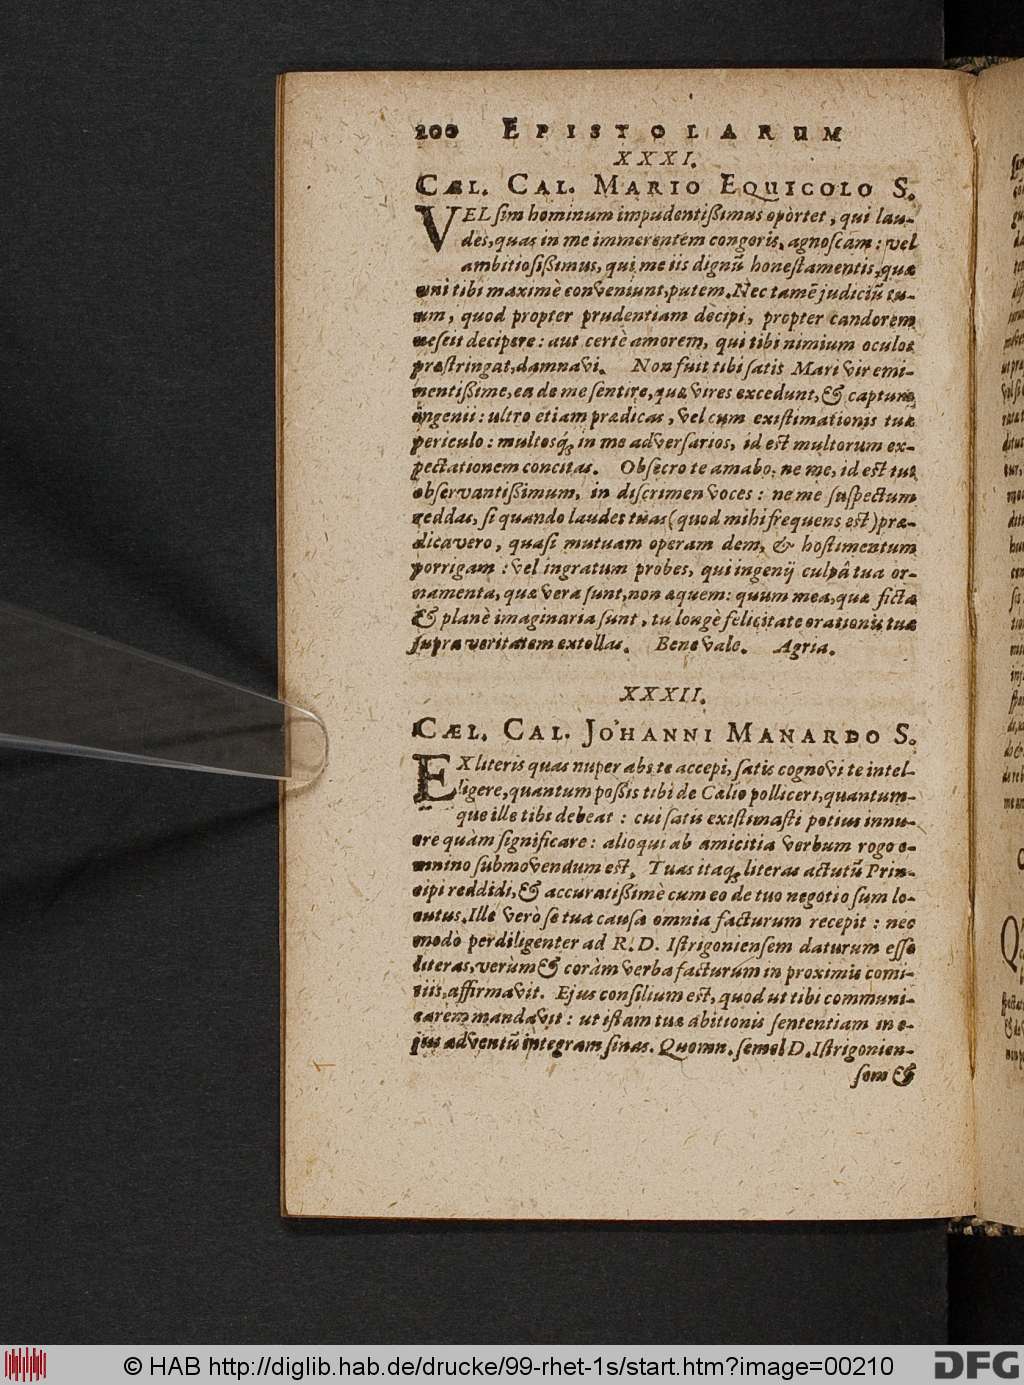 200 EPISTOLARUM
XXXI.
CÆL. CAL. MARIO EQUICOLO S.
VEL sim hominum impudentißimus opòrtet, qui lau-
des, quas in me immerentem congeris, agnoscam: vel
ambitiosißimus, qui me iis dignũ honestamentis, quæ
uni tibi maximè conveniunt, putem. Nec tamẽ judiciũ tu-
um, quod propter prudentiam decipi, propter candorem
nescit decipere: aut certè amorem, qui tibi nimium oculos
præstringat, damnavi. Non fuit tibi satis Mari vir emi-
nentißime, ea de me sentire, quæ vires excedunt, & captum
ingenii: ultro etiam prædicas, vel cum existimationis tuæ
periculo: multosq; in me adversarios, id est multorum ex-
pectationem concitas. Obsecro te amabo, ne me, id est tui
observantißimum, in discrimen voces: ne me suspectum
reddas, si quando laudes tuas (quod mihi frequens est) præ-
dicavero, quasi mutuam operam dem, & hostimentum
porrigam: vel ingratum probes, qui ingenij culpâ tua or-
namenta, quæ vera sunt, non æquem: quum mea, quæ ficta
& planè imaginaria sunt, tu longè felicitate orationis tuæ
supra veritatem extollas. Bene vale. Agria.
XXXII.
CÆL. CAL. JOHANNI MANARDO S.
EX literis quas nuper abs te accepi, satis cognovi te intel-
ligere, quantum poßis tibi de Calio polliceri, quantum-
que ille tibi debeat: cui satis existimasti potius innu-
ere quàm significare: alioqui ab amicitia verbum rogo o-
mnino submovendum est. Tuas itaq; literas actutũ Prin-
cipi reddidi, & accuratißimè cum eo de tuo negotio sum lo-
cutus. Ille verò se tua causa omnia facturum recepit: nec
modò perdiligenter ad R. D. Istrigoniensem daturum esse
literas, verùm & coràm verba facturum in proximis comi-
tiis, affirmavit. Ejus consilium est, quod ut tibi communi-
carem mandavit: ut istam tuæ abitionis sententiam in e-
jus adventũ integram sinas. Quomn. semel D. Istrigonien-
sem &
© HAB http://diglib.hab.de/drucke/99-rhet-1s/start.htm?image=00210
DFG